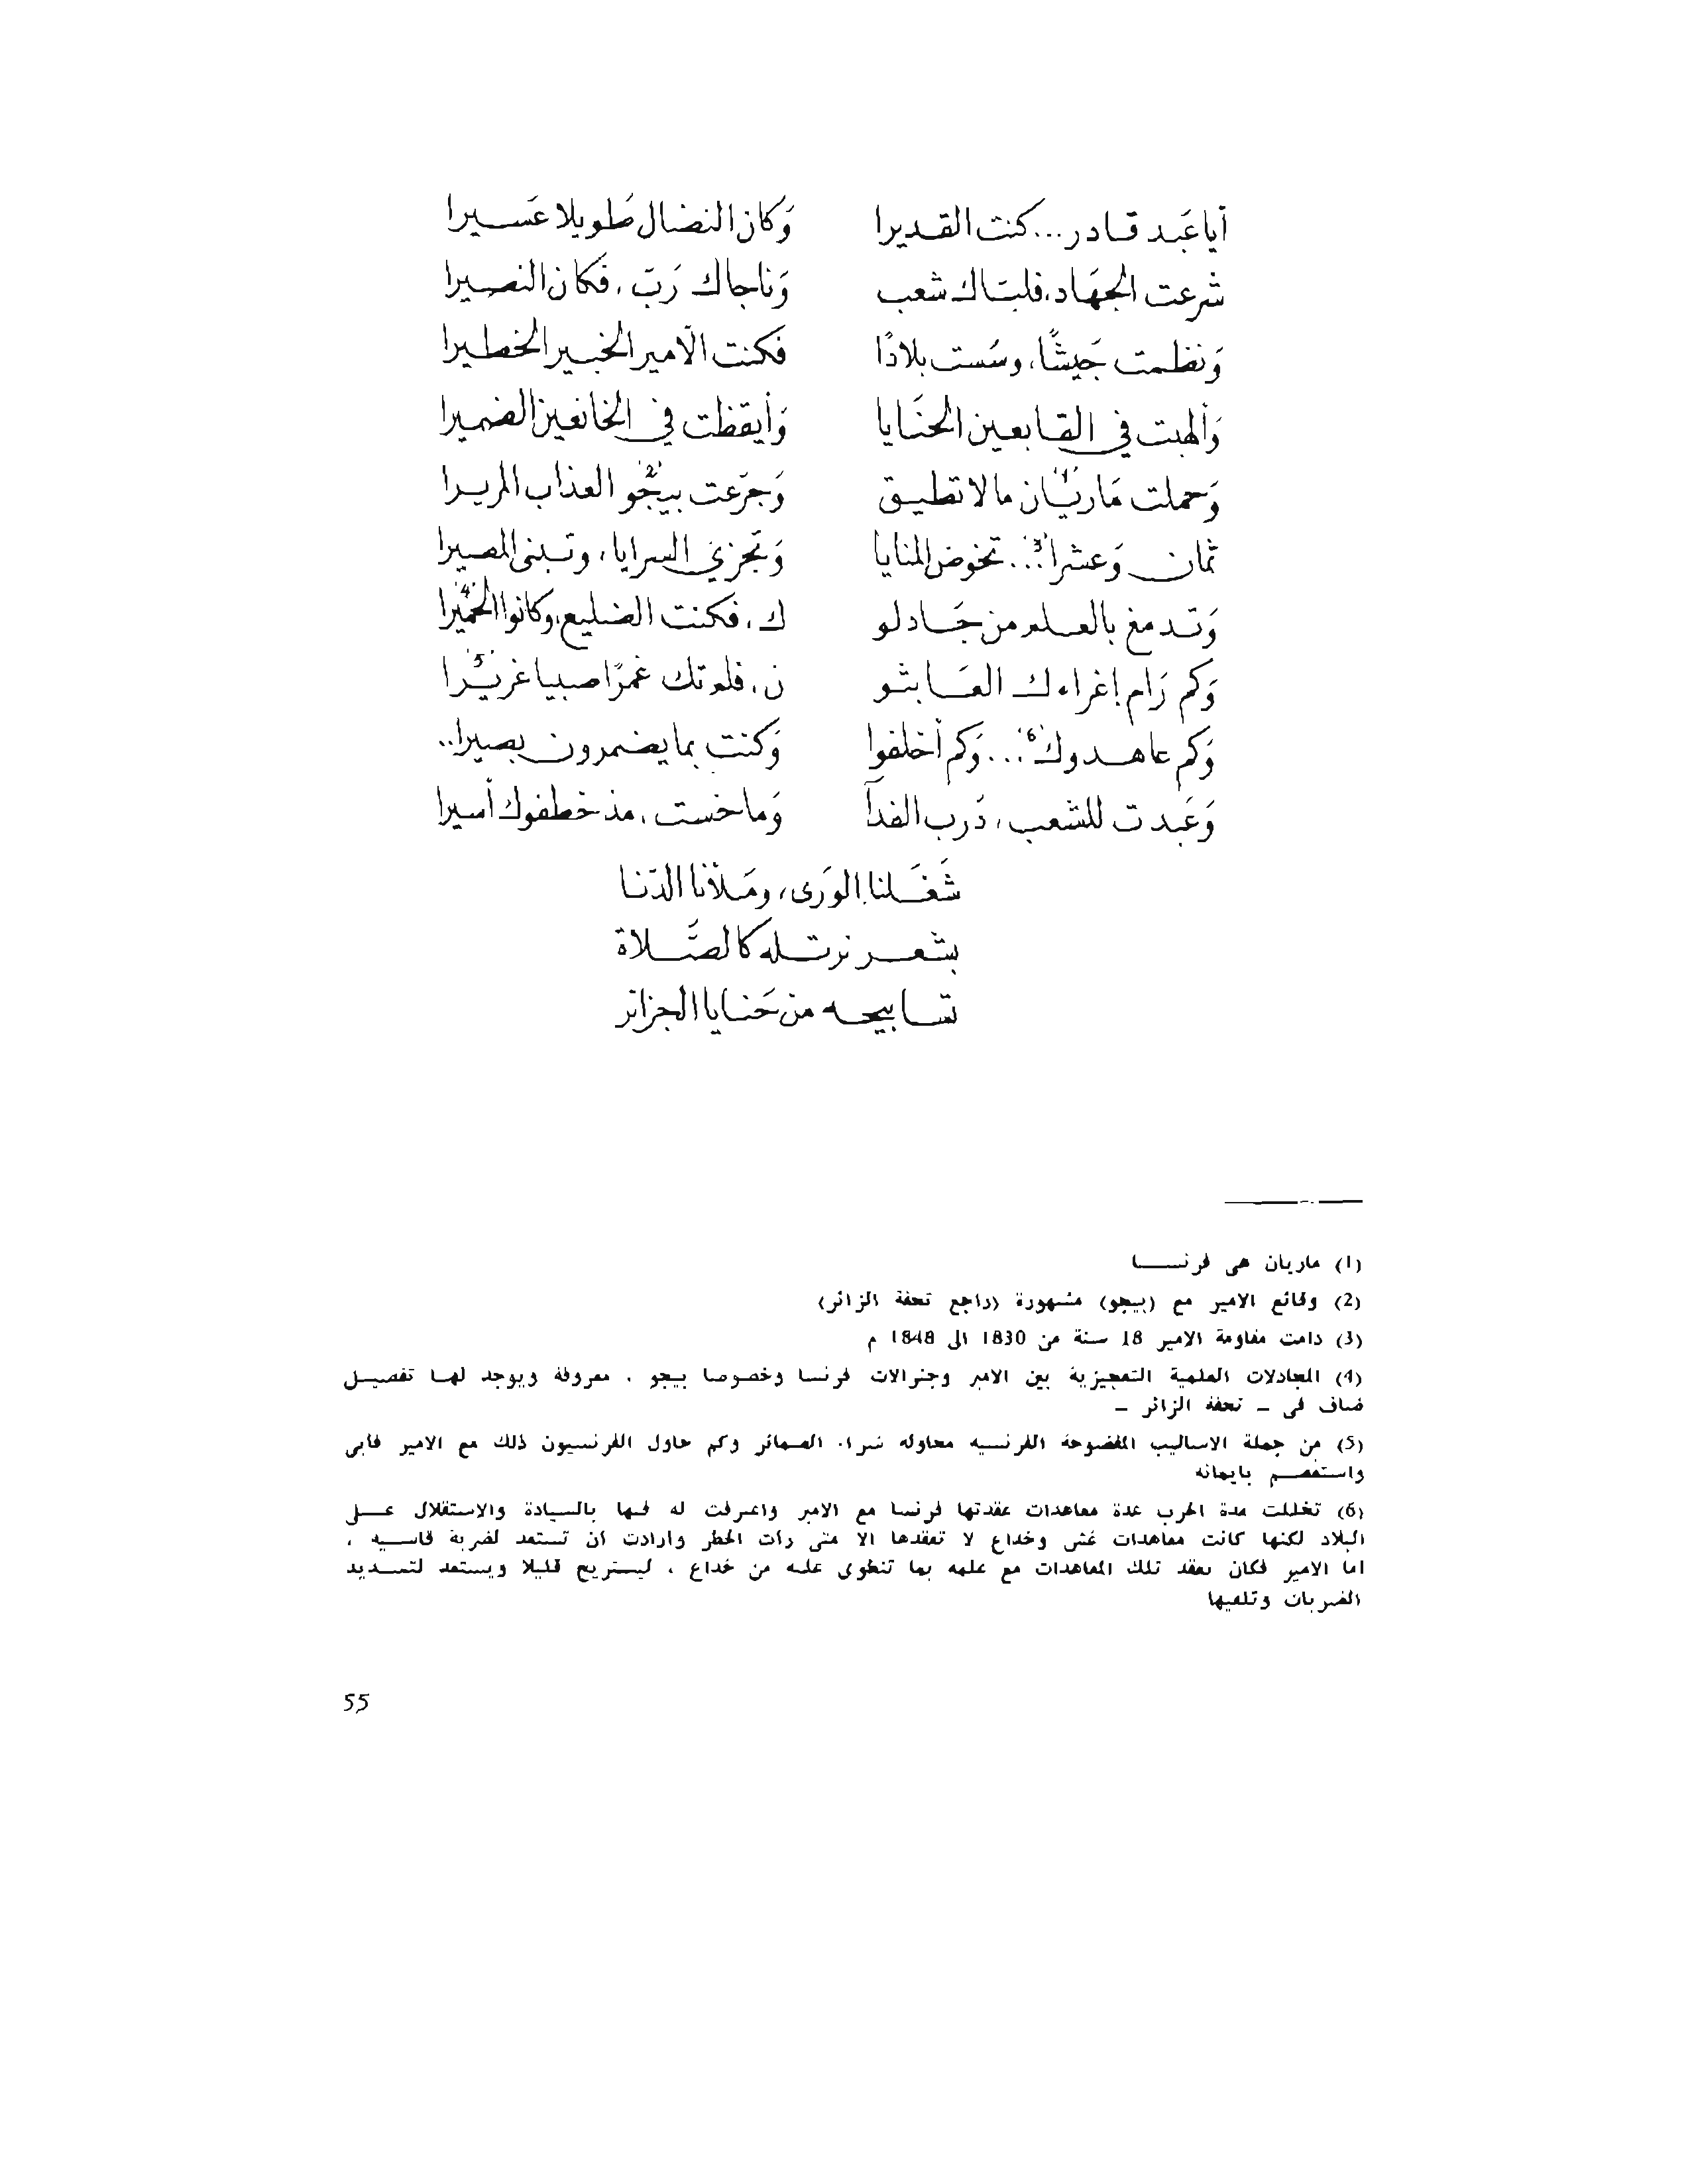 أيا عَبد قادر... كنت القديرا وَكان النضال طَويلا عَسيرا
شرعت الجهَاد، فلبّاك شعب وَناجاك رَبّ، فَكان النصيرا
وَنظمت جَيشًا، وسُست بلادًا فَكنت الأمير الخبير الخطيرا
وَألهبت في القابعين الحنَايا وَأيقظت في الخانعين الضميرا
وَحملت مَاريَان (1) ما لا تطيق وَجرّعت بيجُو (2) العذاب المريرا
ثمان وَعشرا (3)... تخوض المنايا وَتجزي السرايا، وتبنى المصيرا
وَتدمغ بالعلم من جَادلو ك، فكنت الضليع، وكانوا الحَميرا (4)
وَكم رَام إغراءك العَابثو ن، فلم تك غمرًا صبيا غريرا (5)
وَكم عاهدوك (6)... وَكم أخلفوا وَكنت بما يضمرون بصيرا..
وَعَبدت للشعب، دَرب الفدآ وَما خست، مذ خطفوك أسيرا
شَغَلنا الوَرى، ومَلأنا الدّنا
بشعر نرتله كالصَّلاة
تسَابيحه من حَنايا الجزائر
(1) ماريان هى فرنسا
(2) وقائع الامير مع (بيجو) مشهورة (راجع تحفة الزائر)
(3) دامت مقاومة الامير 18 سنة من 1830 الى 1848 م
(4) المجادلات العلمية التعجيزية بين الامير وجنرالات فرنسا وخصوصا بيجو ، معروفة ويوجد لها تفصيل
ضاف فى – تحفة الزائر –
(5) من جملة الاساليب المفضوحة الفرنسيه محاوله شراء الضمائر وكم حاول الفرنسيون ذلك مع الامير فأبى
واستعصم بايمانه
(6) تخللت مدة الحرب عدة معاهدات عقدتها فرنسا مع الامير واعترفت له فيها بالسيادة والاستقلال على
البلاد لكنها كانت معاهدات غش وخداع لا تعقدها الا متى رأت الخطر وارادت ان تستعد لضربة قاسيه ،
اما الامير فكان يعقد تلك المعاهدات مع علمه بما تنطوى عليه من خداع ، ليستريح قليلا ويستعد لتسديد
الضربات وتلقيها
55